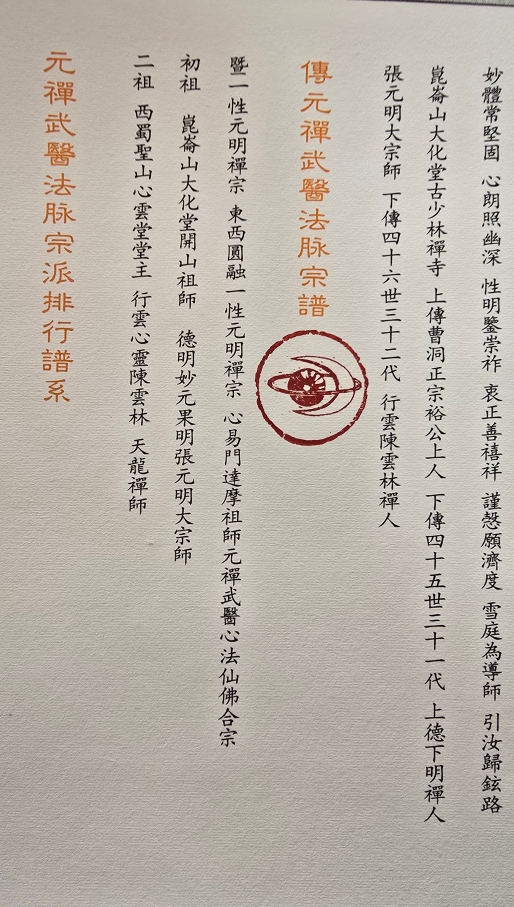 妙體常堅固 心朗照幽深 性明鑒崇祚 衷正善禧祥 謹愨願濟度 雪庭為導師 引汝歸鉉路
崑崙山大化堂古少林禪寺 上傳曹洞正宗裕公上人 下傳四十五世三十一代 上德下明禪人
張元明大宗師 下傳四十六世三十二代 行雲陳雲林禪人
傳元禪武醫法脉宗譜
暨一性元明禪宗 東西圓融一性元明禪宗 心易門達摩祖師元禪武醫心法仙佛合宗
初祖 崑崙山大化堂開山祖師 德明妙元果明張元明大宗師
二祖 西蜀聖山心雲堂堂主 行雲心靈陳雲林 天龍禪師
元禪武醫法脉宗派排行譜系